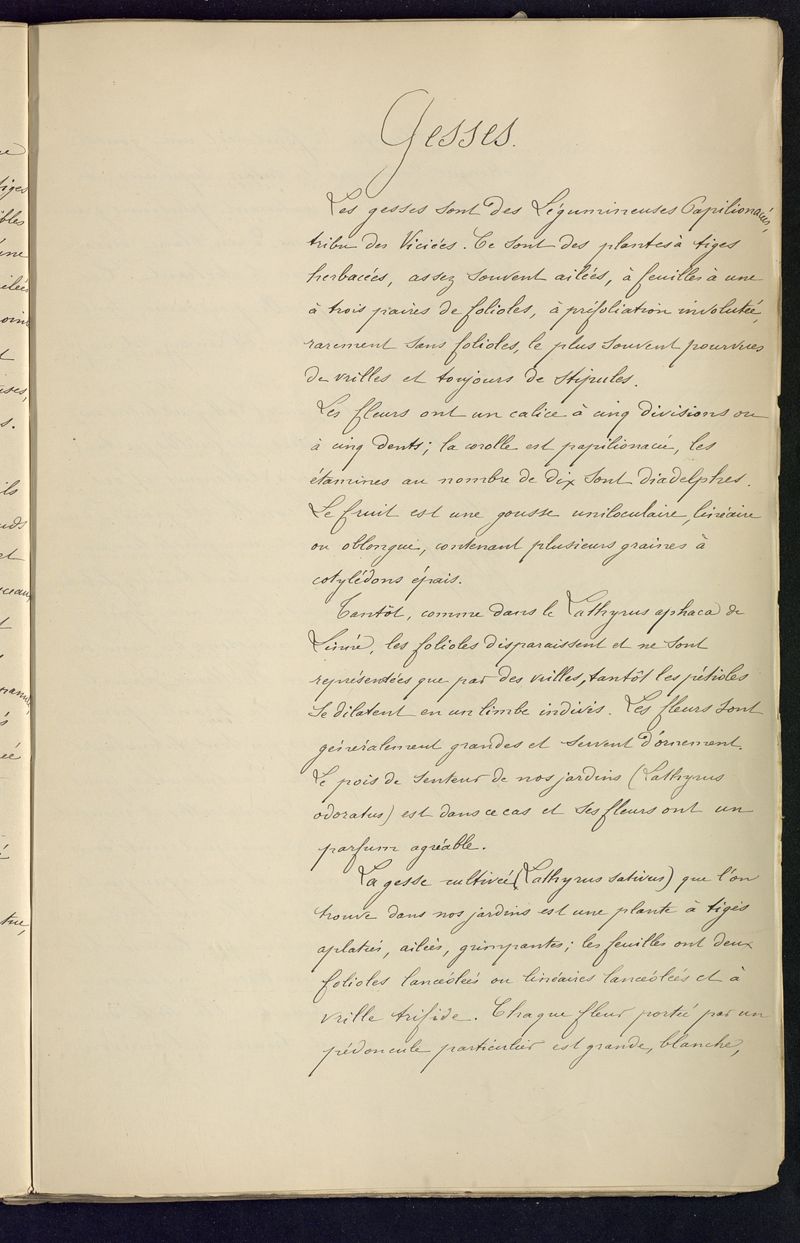 Gesses.
Les gesses sont des Légumineuses Papilionacées,
tribu des Viciées. Ce sont des plantes à tiges
herbacées, assez souvent ailées, à feuilles à une
à trois paires de folioles, à préfoliation involutée,
rarement sans folioles, le plus souvent pourvues
de vrilles et toujours de stipules.
Les fleurs ont un calice à cinq divisions ou
à cinq dents; la corolle est papilionacée, les
étamines au nombre de dix sont diadelphes.
Le fruit est une gousse uniloculaire, linéaire
ou oblongue, contenant plusieurs graines à
cotylédons épais.
Tantôt, comme dans le Lathyrus aphaca de
Linné, les folioles disparaissent et ne sont
représentées que par des vrilles, tantôt les pétioles
se dilatent en un limbe indivis. Les fleurs sont
généralement grandes et servent d'ornement.
Le pois de senteur de nos jardins (Lathyrus
odoratus) est dans ce cas et ses fleurs ont un
parfum agréable.
La gesse cultivée (Lathyrus sativus) que l'on
trouve dans nos jardins est une plante à tiges
aplaties, ailées, grimpantes; les feuilles ont deux
folioles lancéolées ou linéaires lancéolées et à
vrille trifide. Chaque fleur portée par un
pédoncule particulier est grande, blanche,